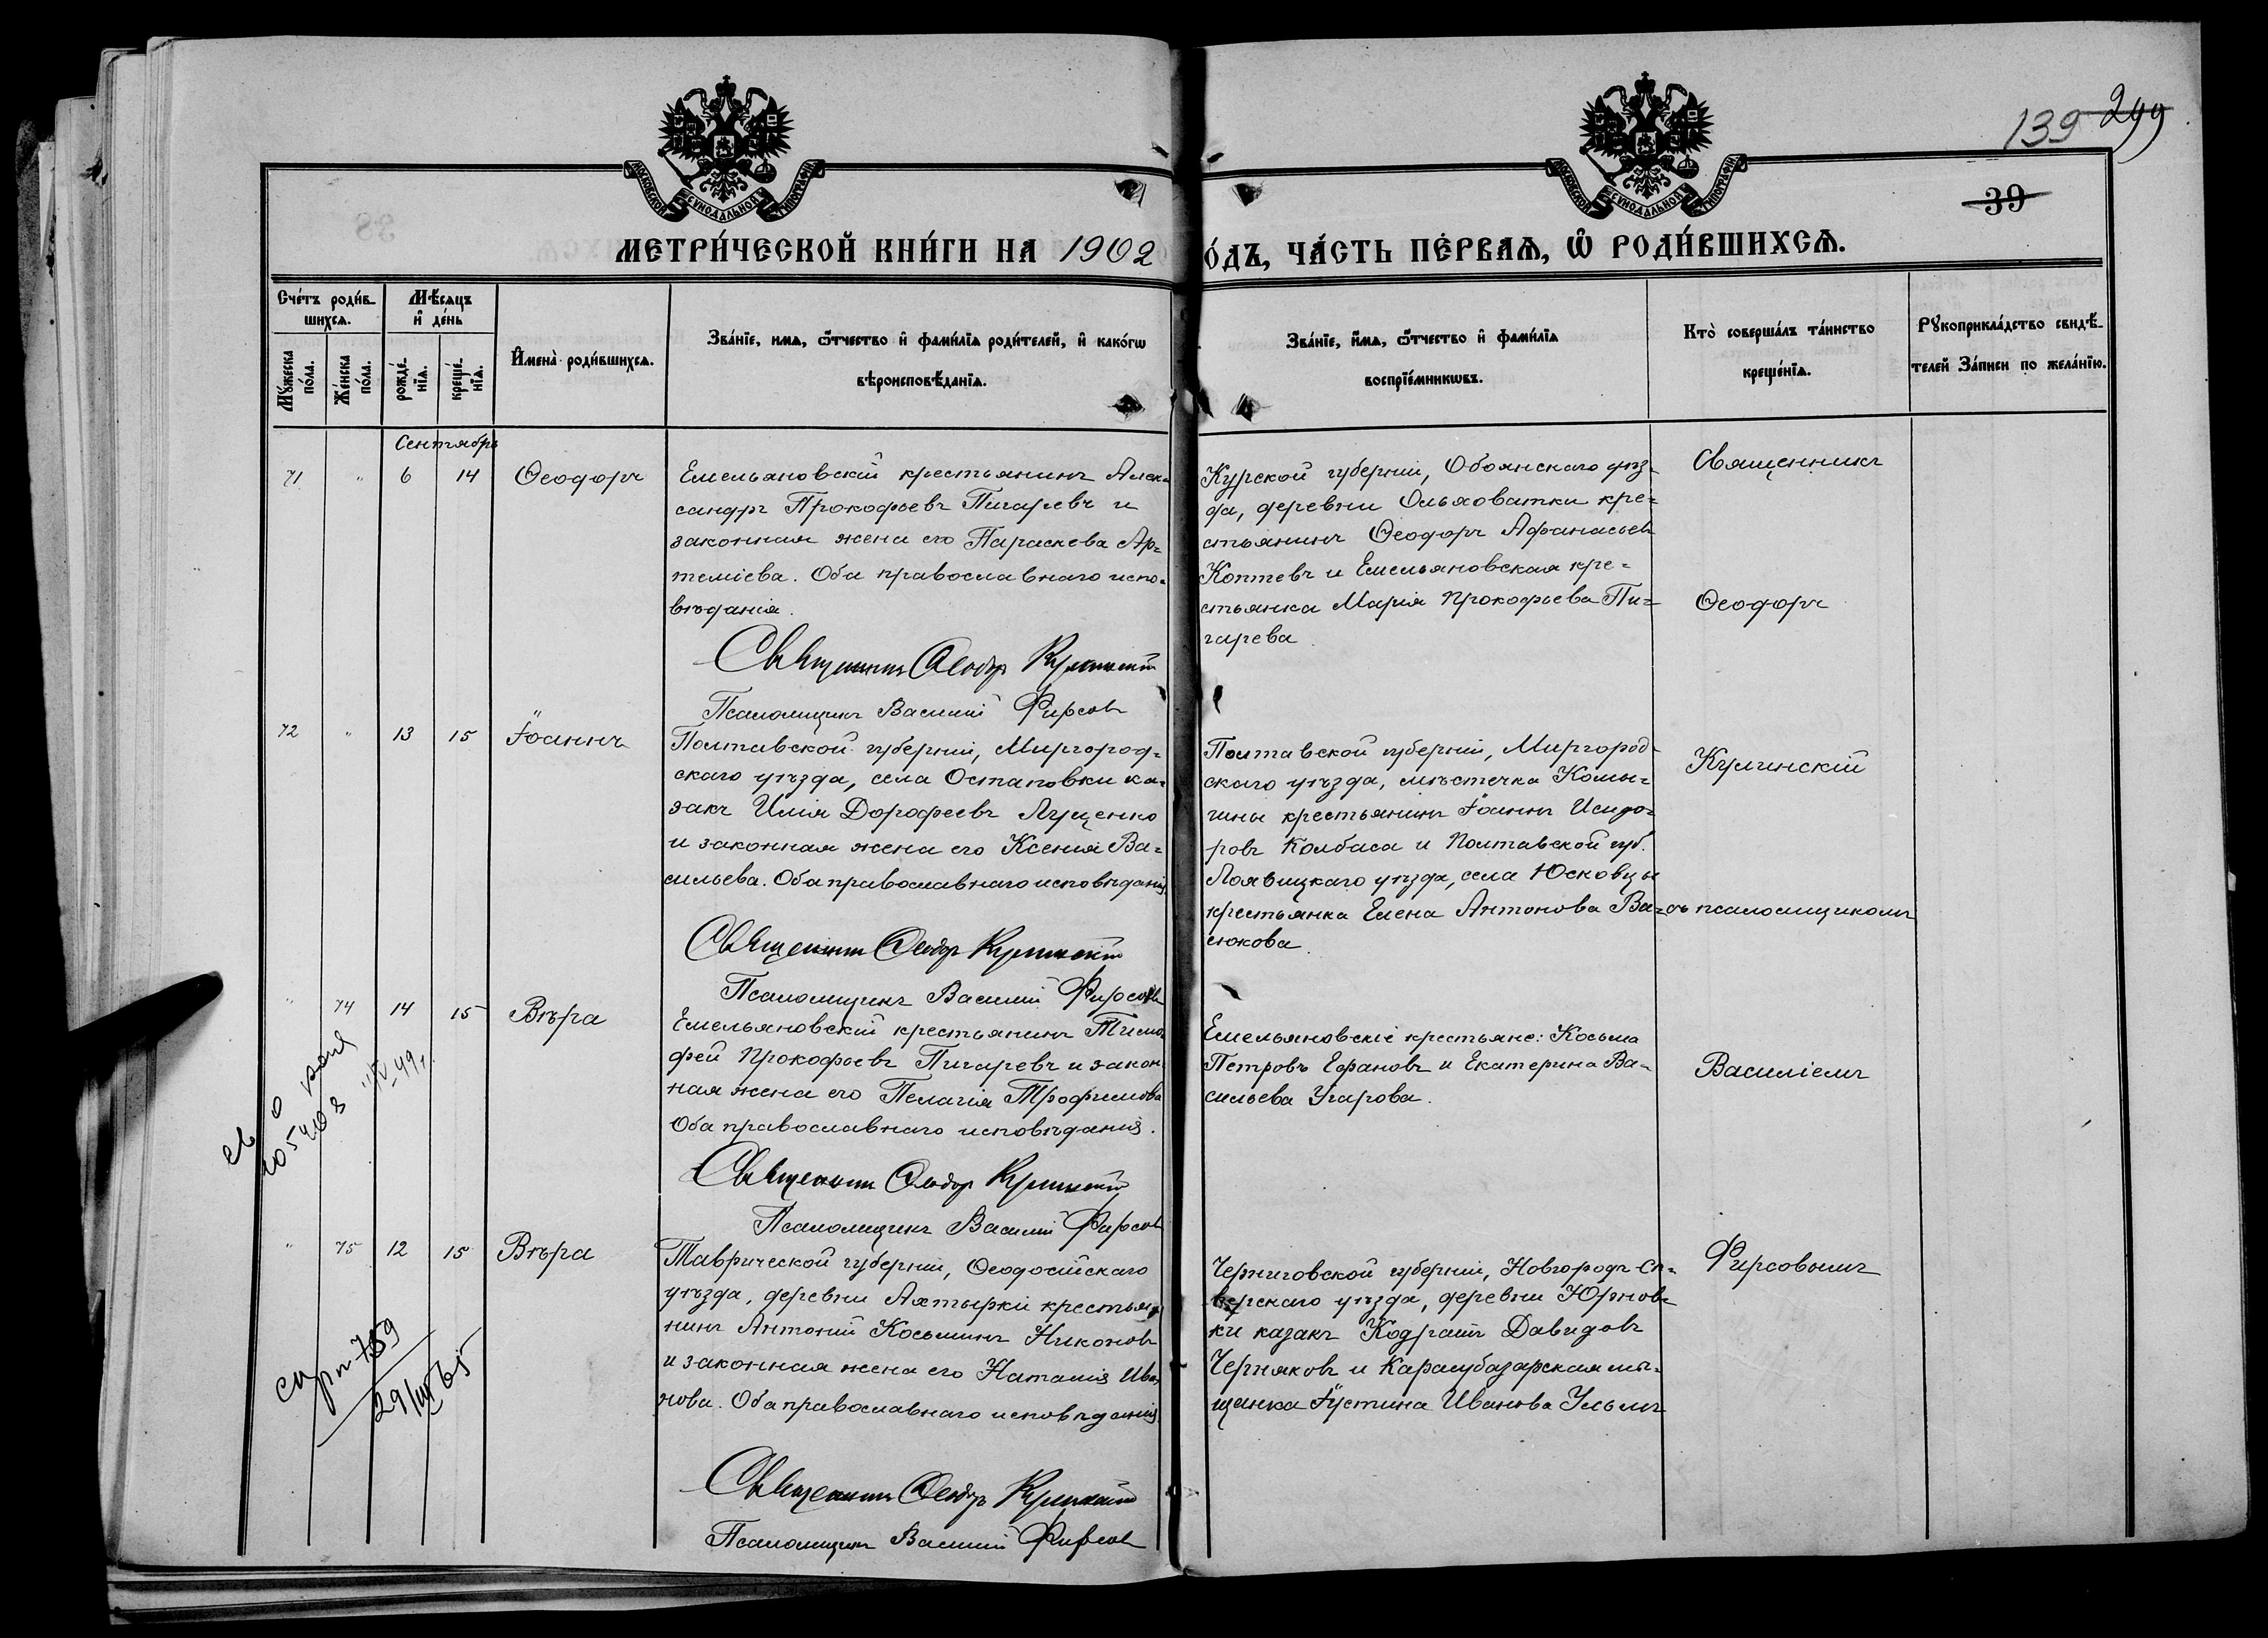 139 299
39
МОСКОВСКОЙ СѴНОДАЛЬНОЙ ТИПОГРАФІИ
МОСКОВСКОЙ СѴНОДАЛЬНОЙ ТИПОГРАФІИ
МЕТРИ́ЧЕСКОЙ КНИ́ГИ НА 1902
О́ДЪ, ЧА́СТЬ ПЕ́РВАѦ, Ѽ РОДИ́ВШИХСѦ.
Сче́тъ роди́в-
шихсѧ.
Мꙋ́жеска по́ла.
Же́нска по́ла.
Мѣ́сѧцъ
и҆ де́нь
рожде́-нїѧ.
креще́-нїѧ.
И҆мена̀ роди́вшихсѧ.
Зва́нїе, имѧ, ѻ҆́тчество и҆ фами́лїѧ роди́телей, и҆ како́гѡ
вѣроисповѣ́данїѧ.
Зва́нїе, и҆́мѧ, ѻ҆́тчество и҆ фами́лїѧ
воспрїе́мникѡвъ.
Кто̀ соверша́лъ та́инство
креще́нїѧ.
Рꙋкоприкла́дство свидѣ́-
телей За́писи по жела́нїю.
Сентябрь
71 " 6 14 Ѳеодоръ
Емельяновскій крестьянинъ Алек=
сандръ Прокофьевъ Пигаревъ и
законная жена его Параскева Ар=
теміева. Оба православнаго испо=
вѣданія.
Священникъ Ѳеодоръ Кулинскій
Псаломщикъ Василій Фирсовъ
Курской губерніи, Обоянскаго уѣз-
да, деревни Ольховатки кре=
стьянинъ Ѳеодоръ Афанасьевъ
Коптевъ и Емельяновская кре=
стьянка Марія Прокофьева Пи=
гарева.
Священникъ
Ѳеодоръ
72 " 13 15 Іоаннъ
Полтавской губерніи, Миргород=
скаго уѣзда, села Остаповки ка=
закъ Илія Дорофеевъ Луценко
и законная жена его Ксенія Ва=
сильева. Оба православнаго исповѣданія.
Священникъ Ѳеодоръ Кулинскій
Псаломщикъ Василій Фирсовъ
Полтавской губерніи, Миргород-
скаго уѣзда, мѣстечка Комы=
шны крестьянинъ Іоаннъ Исидо=
ровъ Колбаса и Полтавской губ.
Лохвицкаго уѣзда, села Юсковцы
крестьянка Елена Антонова Ва=
сюкова.
Кулинскій
съ псаломщикомъ
" 74 14 15 Вѣра
Емельяновскій крестьянинъ Тимо
фей Прокофьевъ Пигаревъ и закон
ная жена его Пелагія Трофимова
Оба православнаго исповѣданія.
Священникъ Ѳеодоръ Кулинскій
Псаломщикъ Василій Фирсовъ
Емельяновскіе крестьяне: Косьма
Петровъ Ефановъ и Екатерина Ва=
сильева Угарова.
Василіемъ
" 75 12 15 Вѣра
Таврической губерніи, Ѳеодосійскаго
уѣзда, деревни Ахтырки крестья
нинъ Антоній Косьминъ Никоновъ
и законная жена его Наталія Ива
нова. Оба православнаго исповѣданія
Священникъ Ѳеодоръ Кулинскій
Псаломщикъ Василій Фирсовъ
Черниговской губерніи, Новгородъ-Сѣ=
верскаго уѣзда, деревни Юрнов=
ки казакъ Кодратъ Давидовъ
Черняковъ и Карасубазарская мѣ=
щанка Іустина Иванова
Фирсовымъ
29/III 65